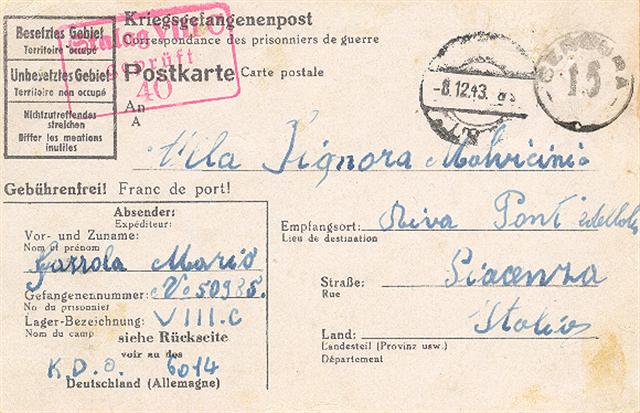 Besetztes Gebiet
Territoire occupé
Unbesetztes Gebiet
Territoire non occupé
Nichtzutreffendes
streichen
Differ les mentions
inutiles
Stalag VIII C
geprüft
40
Kriegsgefangenenpost
Correspondance des prisonniers de guerre
Postkarte Carte postale
An
A
-8.12.43.
CENSURA
15
Alla Signora Malvicini
Gebührenfrei! Franc de port!
Absender:
Expéditeur:
Vor- und Zuname:
Nom et prénom
Mario
Gefangenennummer: No 50985.
No du prisonnier
Lager-Bezeichnung: VIII.C
Nom du camp
siehe Rückseite
voir au dos
K.D.O. 6014
Deutschland (Allemagne)
Empfangsort: Riva Ponte
Lieu de destination
Straße: Piacenza
Rue
Land: Italia
Landesteil (Provinz usw.)
Département